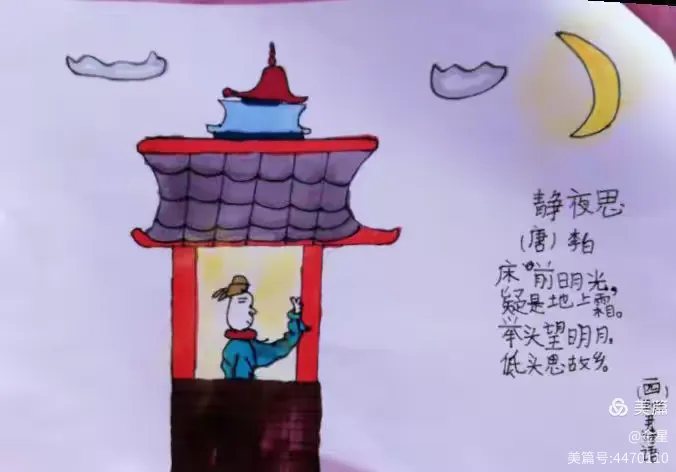 静夜思
（唐）李白
床前明月光，
疑是地上霜。
举头望明月，
低头思故乡。
美篇
美篇号:4470110